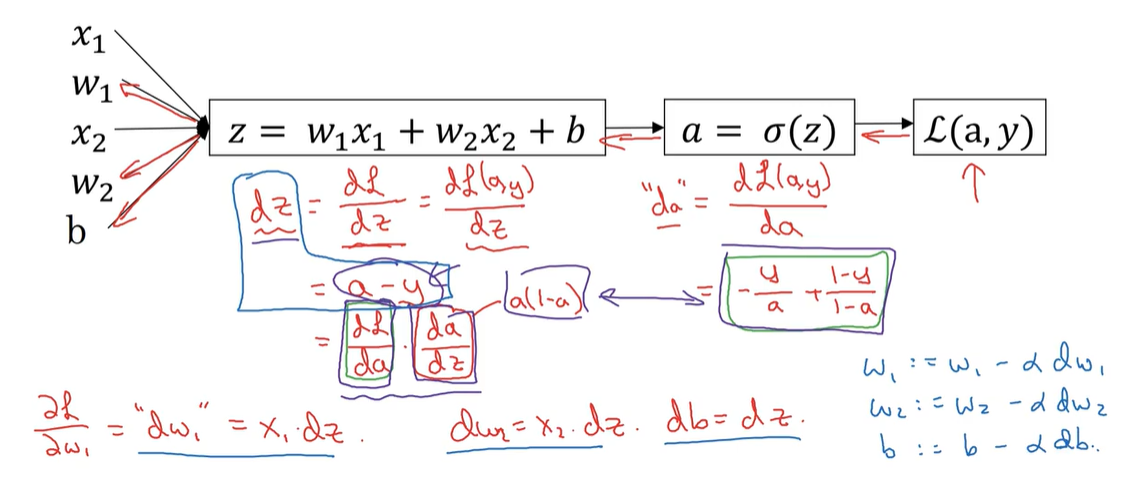 x₁
w₁
x₂
w₂
b
z = w₁x₁ + w₂x₂ + b
a = σ(z)
ℒ(a, y)
dz = dℒ/dz = dℒ(a,y)/dz
"da" = dℒ(a,y)/da
= a - y
= dℒ/da · da/dz
a(1-a)
= -y/a + 1-y/1-a
∂ℒ/∂w₁ = "dw₁" = x₁·dz.
dw₂ = x₂·dz.
db = dz.
w₁ := w₁ - α dw₁
w₂ := w₂ - α dw₂
b := b - α db.